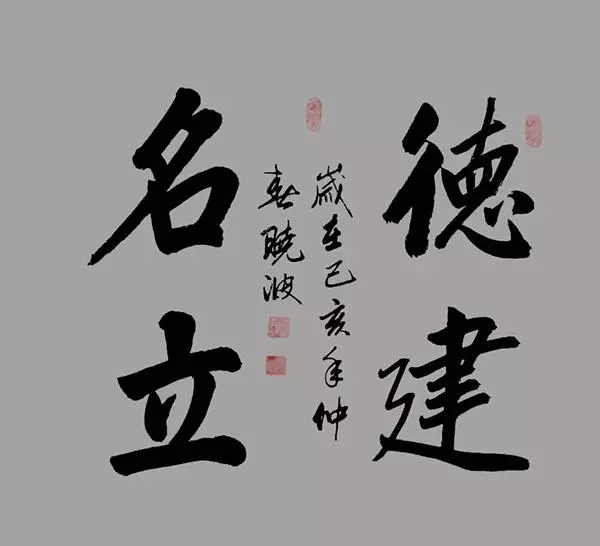 德建
歲在己亥年仲
春曉波
名立